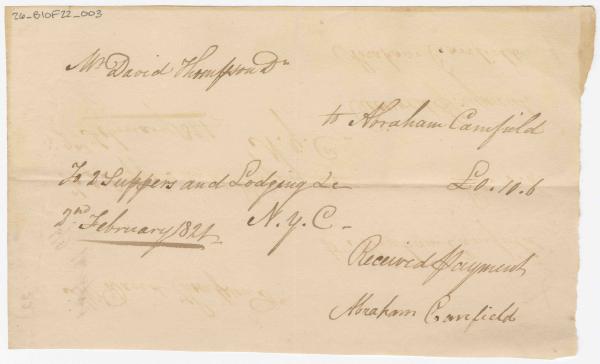 26_B10F22_003
Mr David Thompson Dr
to Abraham Camfield
To 2 Suppers and Lodging &c £0.10.6
2nd February 1821 N.Y.C-
Received Payment
Abraham Camfield